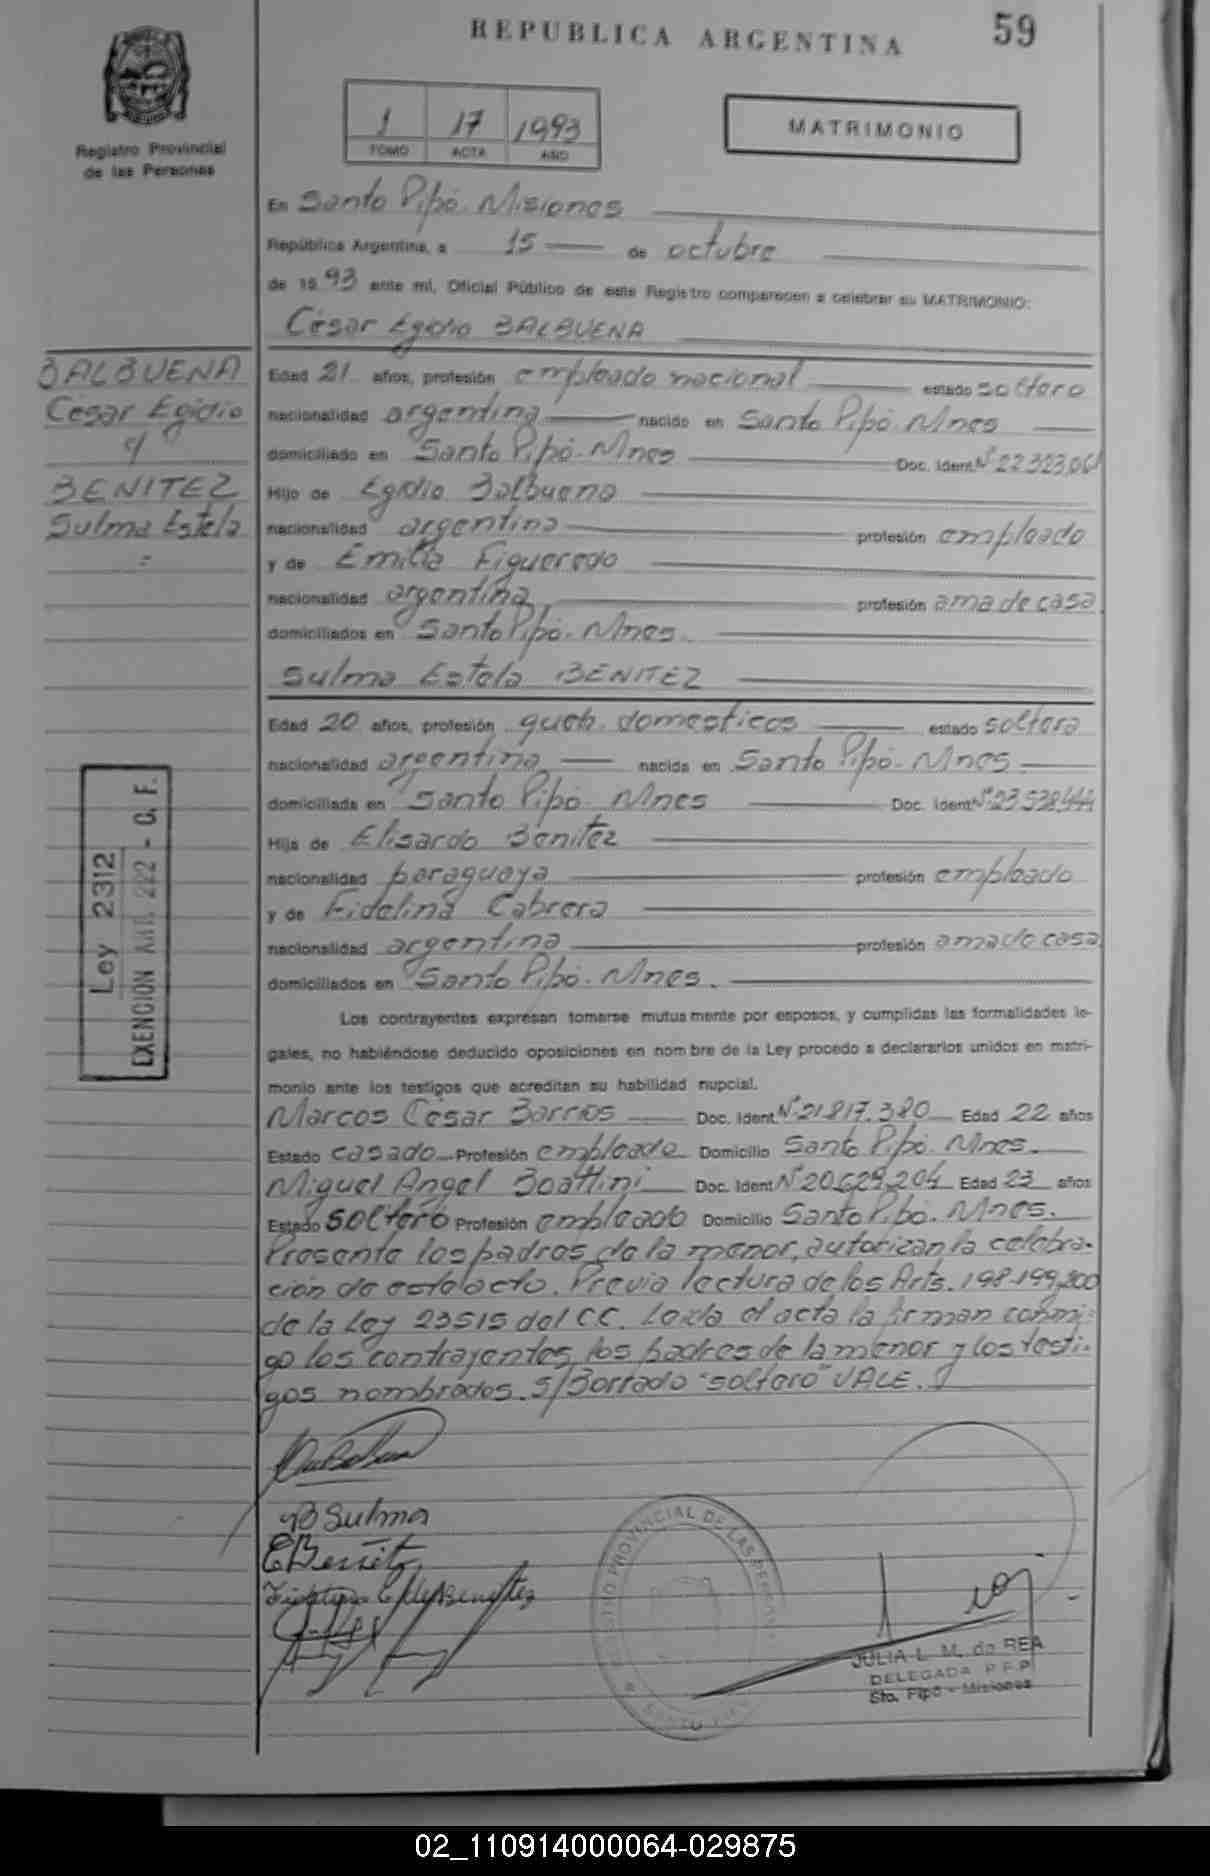 REPUBLICA ARGENTINA
59
Registro Provincial
de las Personas
1 17 1993
TOMO ACTA AÑO
MATRIMONIO
En Santo Pipó. Misiones
República Argentina, a 15 de octubre
de 1993 ante mí, Oficial Público de este Registro comparecen a celebrar su MATRIMONIO:
César Egidio BALBUENA
BALBUENA
César Egidio
y
BENITEZ
Sulma Estela
=
Edad 21 años, profesión empleado nacional estado soltero
nacionalidad argentina nacido en Santo Pipó. Mnes
domiciliado en Santo Pipó. Mnes Doc. Ident. Nº 22.323.061
Hijo de Egidio Balbuena
nacionalidad argentina profesión empleado
y de Emilia Figueredo
nacionalidad argentina profesión ama de casa
domiciliados en Santo Pipó. Mnes.
Sulma Estela BENITEZ
Edad 20 años, profesión queh. domesticos estado soltera
nacionalidad argentina nacida en Santo Pipó. Mnes.
domiciliada en Santo Pipó. Mnes Doc. Ident. Nº 23.538.444
Hija de Elisardo Benitez
nacionalidad paraguaya profesión empleado
y de Fidelina Cabrera
nacionalidad argentina profesión ama de casa
domiciliados en Santo Pipó. Mnes.
Ley 2312
EXENCION ART. 222 - C. F.
Los contrayentes expresan tomarse mutuamente por esposos, y cumplidas las formalidades le-
gales, no habiéndose deducido oposiciones en nombre de la Ley procedo a declararlos unidos en matri-
monio ante los testigos que acreditan su habilidad nupcial.
Marcos César Barrios Doc. Ident. Nº 21.817.380 Edad 22 años
Estado casado Profesión empleado Domicilio Santo Pipó. Mnes.
Miguel Angel Boattini Doc. Ident. Nº 20.629.204 Edad 23 años
Estado soltero Profesión empleado Domicilio Santo Pipó. Mnes.
Presente los padres de la menor, autorizan la celebra-
ción de este acto. Previa lectura de los Arts. 198-199,200
de la Ley 23515 del CC. Leida el acta la firman conmi-
go los contrayentes, los padres de la menor y los testi-
gos nombrados. S/Borrado "soltero" VALE.
Sulma
EBenitez
REGISTRO PROVINCIAL DE LAS PERSONAS
SANTO PIPO
JULIA L. M. de REA
DELEGADA R.P.P.
Sto. Pipó - Misiones
02_110914000064-029875